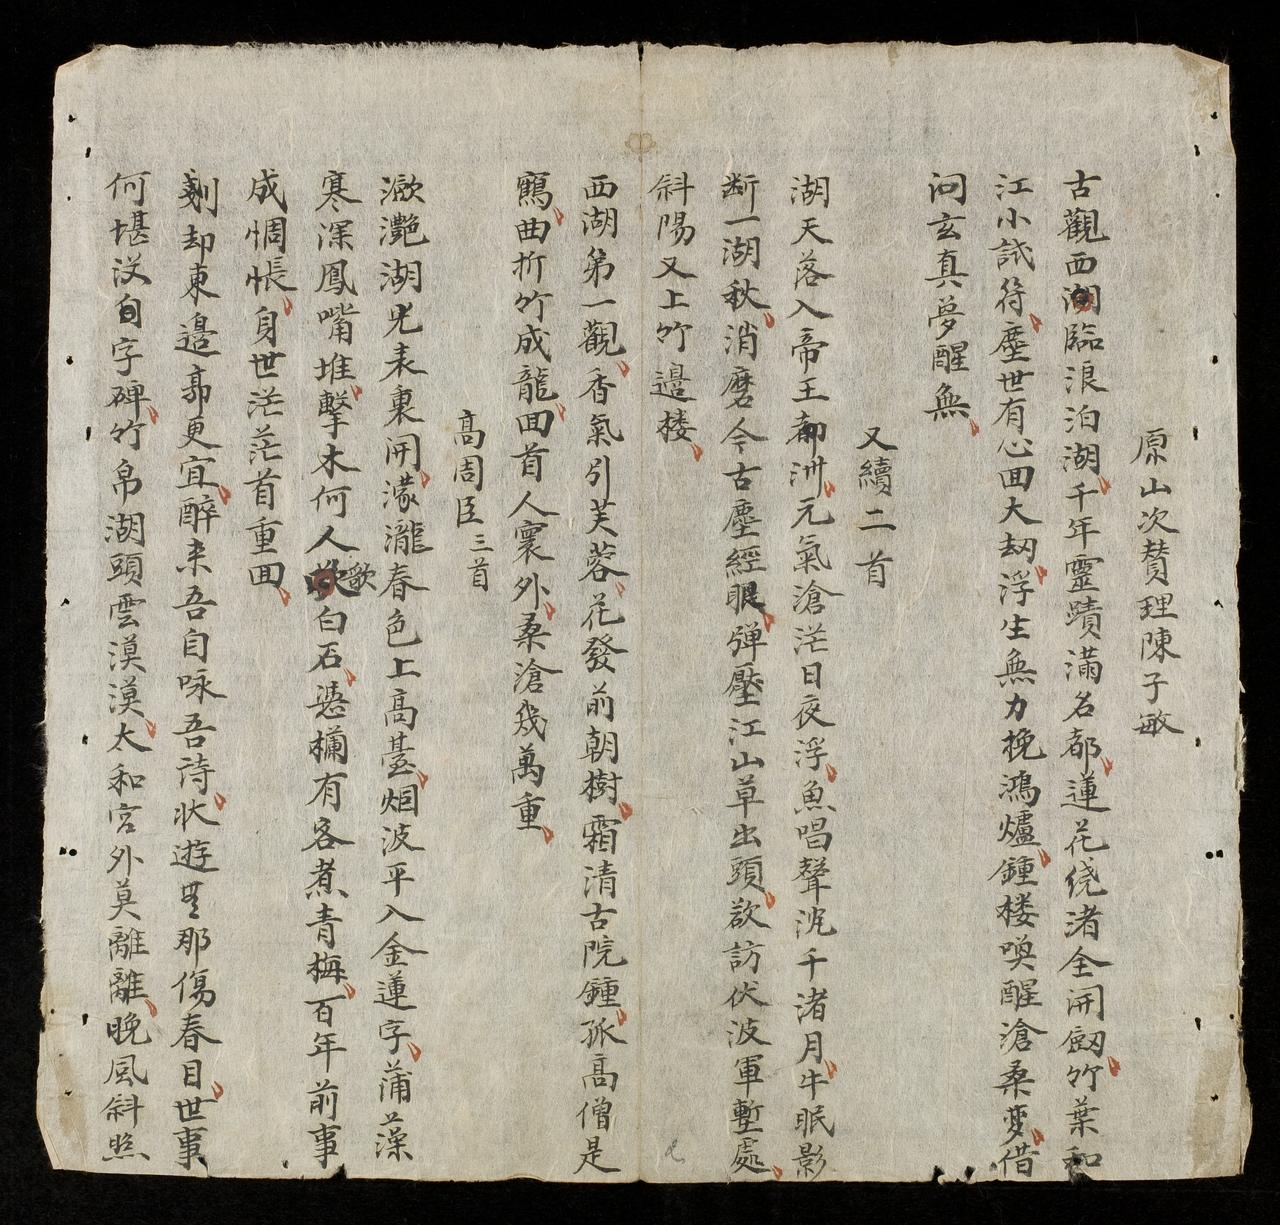 原山次贊理陳子敏
古觀西湖臨浪泊湖千年靈蹟滿名都蓮花繞渚全開劔竹葉和
江小試符塵世有心回大刼浮生無力挽鴻爐鍾楼喚醒滄桑夢借
问玄真夢醒無
又續二首
湖天落入帝王都洲元氣滄茫日夜浮魚唱聲沉千渚月牛眠影
断一湖秋消磨今古塵經眼弹壓江山草出頭欲訪伏波軍塹處
斜陽又上竹邉楼
西湖第一觀香氣引芙蓉花發前朝樹霜清古院鍾孤高僧是
鶴曲折竹成龍回首人寰外桑滄幾萬重
高周臣三首
潋灔湖光表裏開濛瀧春色上高臺烟波平入金蓮字蒲藻
寒深鳳嘴堆擊木何人歌白石憑欄有客煮青梅百年前事
成惆悵身世茫茫首重回
剗却東邉郭更宜醉来吾自咏吾诗壮遊那傷春目世事
何堪没字碑竹帛湖頭雲漠漠太和宮外莫離離晚風斜照